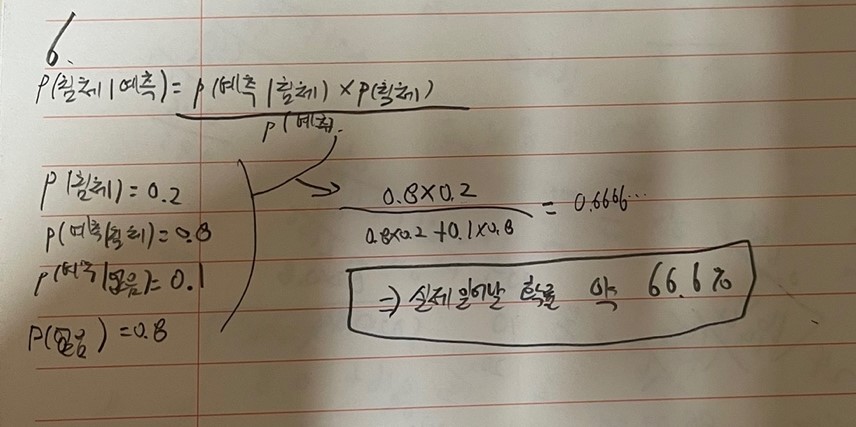 6.
P(침체|예측) = P(예측|침체) × P(침체)
P(예측)
P(침체) = 0.2
P(예측|침체) = 0.8
P(예측|없음) = 0.1
P(없음) = 0.8
0.8×0.2
0.8×0.2 + 0.1×0.8
= 0.6666...
⇒ 실제 일어날 확률 약 66.6%